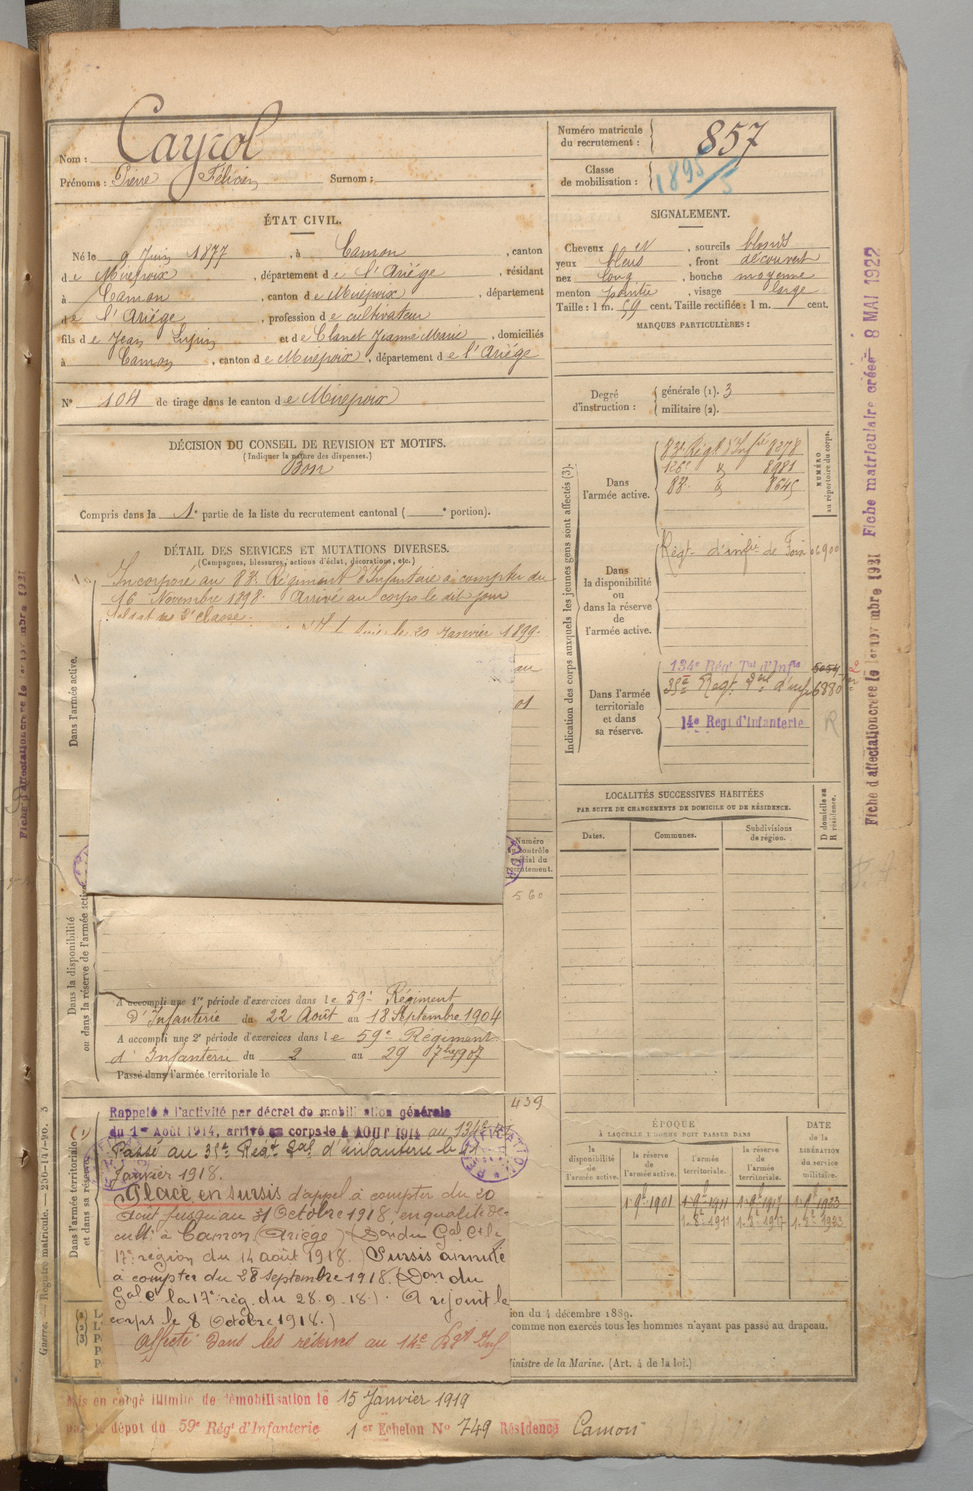 Nom : Cayrol
Prénoms : Pierre Félicien Surnom :
Numéro matricule du recrutement : 857
Classe de mobilisation : 1895/5
ÉTAT CIVIL.
Né le 9 Juin 1877, à Camon, canton
de Mirepoix, département de l'Ariége, résidant
à Camon, canton de Mirepoix, département
de l'Ariége, profession de cultivateur
fils de Jean et de Clanet Jeanne Marie, domiciliés
à Camon, canton de Mirepoix, département de l'Ariége
N° 104 de tirage dans le canton de Mirepoix
SIGNALEMENT.
Cheveux et, sourcils blonds
yeux bleus, front découvert
nez long, bouche moyenne
menton pointu, visage large
Taille : 1 m. 59 cent. Taille rectifiée : 1 m. cent.
MARQUES PARTICULIÈRES :
Degré d'instruction : générale (1). 3
militaire (2).
DÉCISION DU CONSEIL DE REVISION ET MOTIFS.
(Indiquer la nature des dispenses.)
Bon
Compris dans la 1e partie de la liste du recrutement cantonal ( e portion).
DÉTAIL DES SERVICES ET MUTATIONS DIVERSES.
(Campagnes, blessures, actions d'éclat, décorations, etc.)
Incorporé au 83e Régiment d'Infanterie à compter du
16 Novembre 1898. Arrivé au corps le dit jour
soldat de 2e classe.
le 20 Janvier 1899.
au
01
Dans l'armée active.
Indication des corps auxquels les jeunes gens sont affectés (3).
NUMÉRO au répertoire du corps.
Dans l'armée active.
83e Régt d'Infie 8278
126e d° 8981
83e d° 8645
Dans la disponibilité ou dans la réserve de l'armée active.
Régt d'infie de Foix 6900
Dans l'armée territoriale et dans sa réserve.
134e Rég Tal d'Infie
35e Regt Tal d'inf 6880
14e Regt d'Infanterie R
Fiche d'affectation créée le 1er novembre 1931
Fiche matriculaire créée 8 MAI 1922
LOCALITÉS SUCCESSIVES HABITÉES
PAR SUITE DE CHANGEMENTS DE DOMICILE OU DE RÉSIDENCE.
Dates. Communes. Subdivisions de région.
D domicile ou R résidence.
Numéro du contrôle spécial du recrutement.
560
Dans la disponibilité ou dans la réserve de l'armée active.
A accompli une 1re période d'exercices dans le 59e Régiment
d'Infanterie du 22 Août au 18 Septembre 1904
A accompli une 2e période d'exercices dans le 59e Régiment
d'Infanterie du 2 au 29 7bre 1907
Passé dans l'armée territoriale le
439
Dans l'armée territoriale et dans sa réserve.
Rappelé à l'activité par décret de mobilisation générale
du 1er Août 1914, arrivé au corps le 4 AOUT 1914 au 134e
Passé au 35e Regt Tal d'infanterie le 21
Janvier 1918.
Placé en sursis d'appel à compter du 20
août jusqu'au 31 Octobre 1918, en qualité de
cult. à Camon (Ariège) (Don du Gal Ct la
17e région du 14 août 1918.) Sursis annulé
à compter du 28 septembre 1918. (Don du
Gal Ct la 17e rég. du 28.9.18.) A rejoint le
corps le 8 Octobre 1918.)
Affecté dans les réserves au 14e Rgt Inf
ÉPOQUE
À LAQUELLE L'HOMME DOIT PASSER DANS
la disponibilité de l'armée active.
la réserve de l'armée active.
l'armée territoriale.
la réserve de l'armée territoriale.
DATE de la LIBÉRATION du service militaire.
1. 9bre 1901 1. 9bre 1911 1. 9bre 1917 1. 9bre 1923
1. 8e 1911 1. 8e 1917 1. 8e 1923
ion du 4 décembre 1889.
comme non exercés tous les hommes n'ayant pas passé au drapeau.
inistre de la Marine. (Art. 4 de la loi.)
Guerre. — Registre matricule. — 230-147-96.
Mis en congé illimité de démobilisation le 15 Janvier 1919
par le dépôt du 59e Régt d'Infanterie 1er Echelon N° 749 Résidence Camon